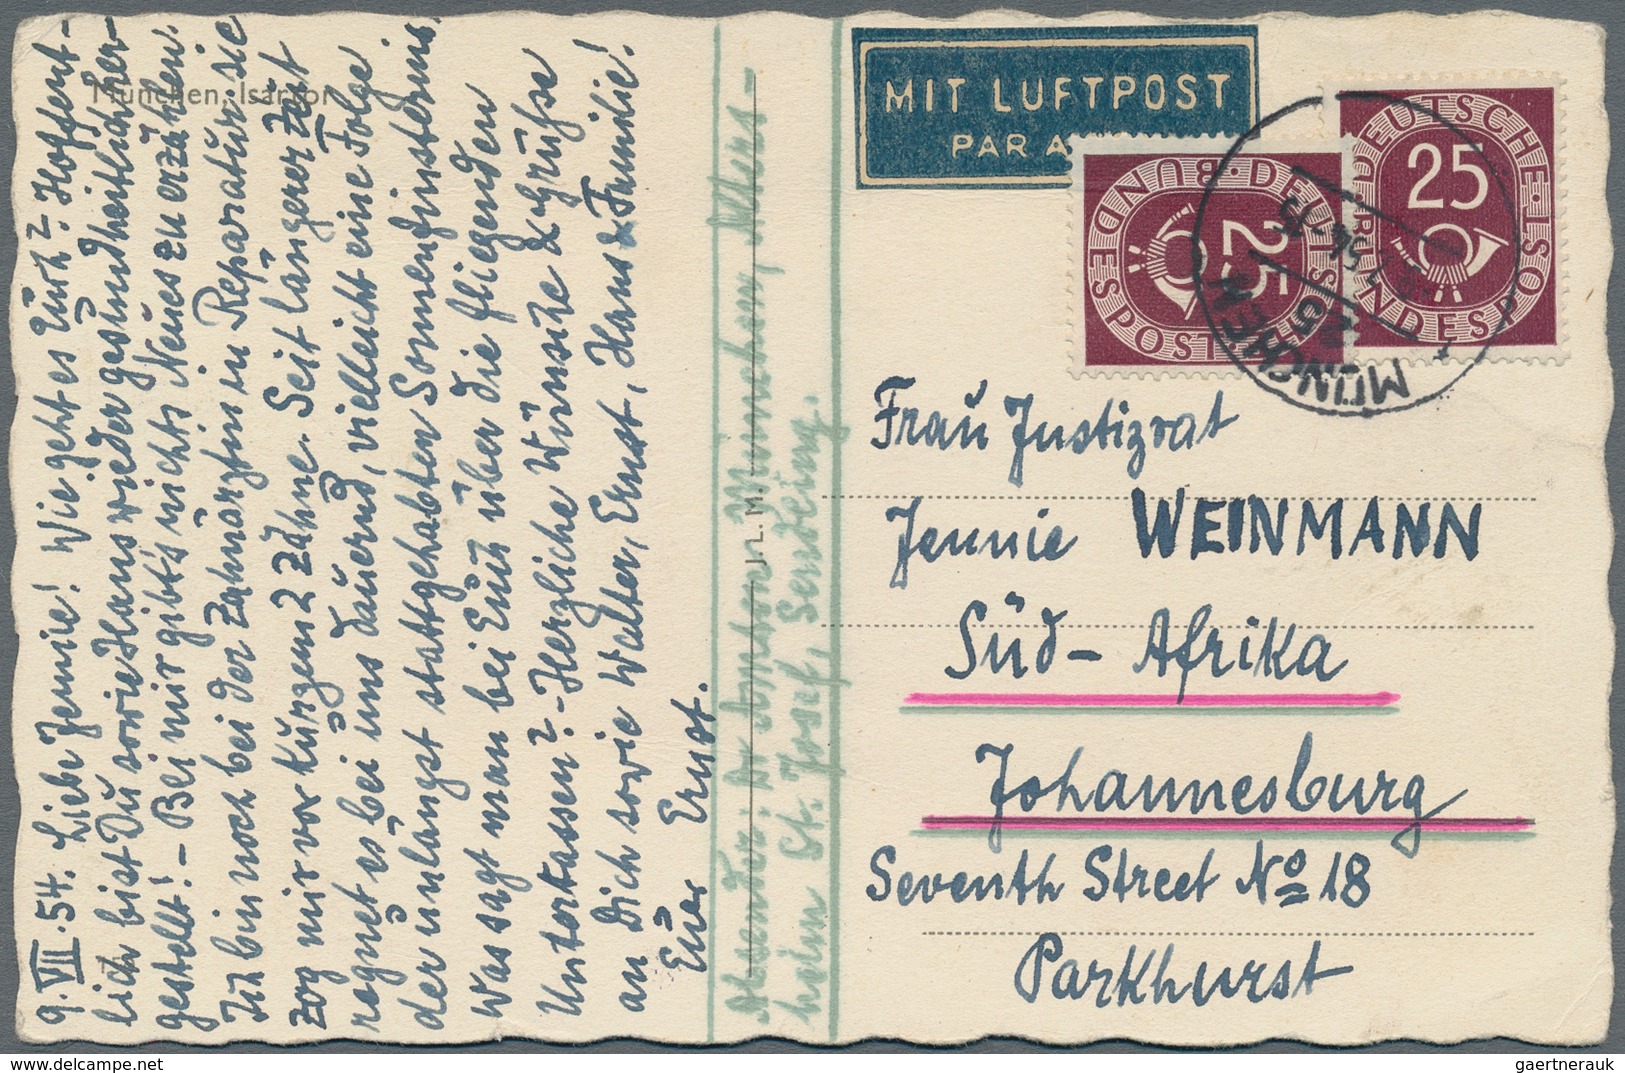 9.VII.54. Liebe Jennie! Wie geht es Euch? Hoffent-
lich bist Du sowie Hans wieder gesundheitl. sicher-
gestellt! - Bei mir gibt's nichts Neues zu erzählen.
Ich bin noch bei der Zahnärztin in Reparatur, sie
zog mir vor kurzem 2 Zähne. Seit längerer Zeit
regnet es bei uns dauernd, vielleicht eine Folge
der unlängst stattgehabten Sonnenfinsternis,
Was sagt man bei Euch über die fliegenden
Untertassen? - Herzliche Wünsche & Grüsse
an Dich sowie Walter, Ernst, Hans & Familie!
Euer Ernst.
München, Isartor
Absender: Dr München, Alters-
heim St. Josef, Sendling.
J.L.M.
MIT LUFTPOST
PAR A
DEUTSCHE BUNDESPOST
25
DEUTSCHE BUNDESPOST
25
MÜNCHEN
Frau Justizrat
Jennie WEINMANN
Süd-Afrika
Johannesburg
Seventh Street No 18
Parkhurst
gaertnerauk
delcampe.net